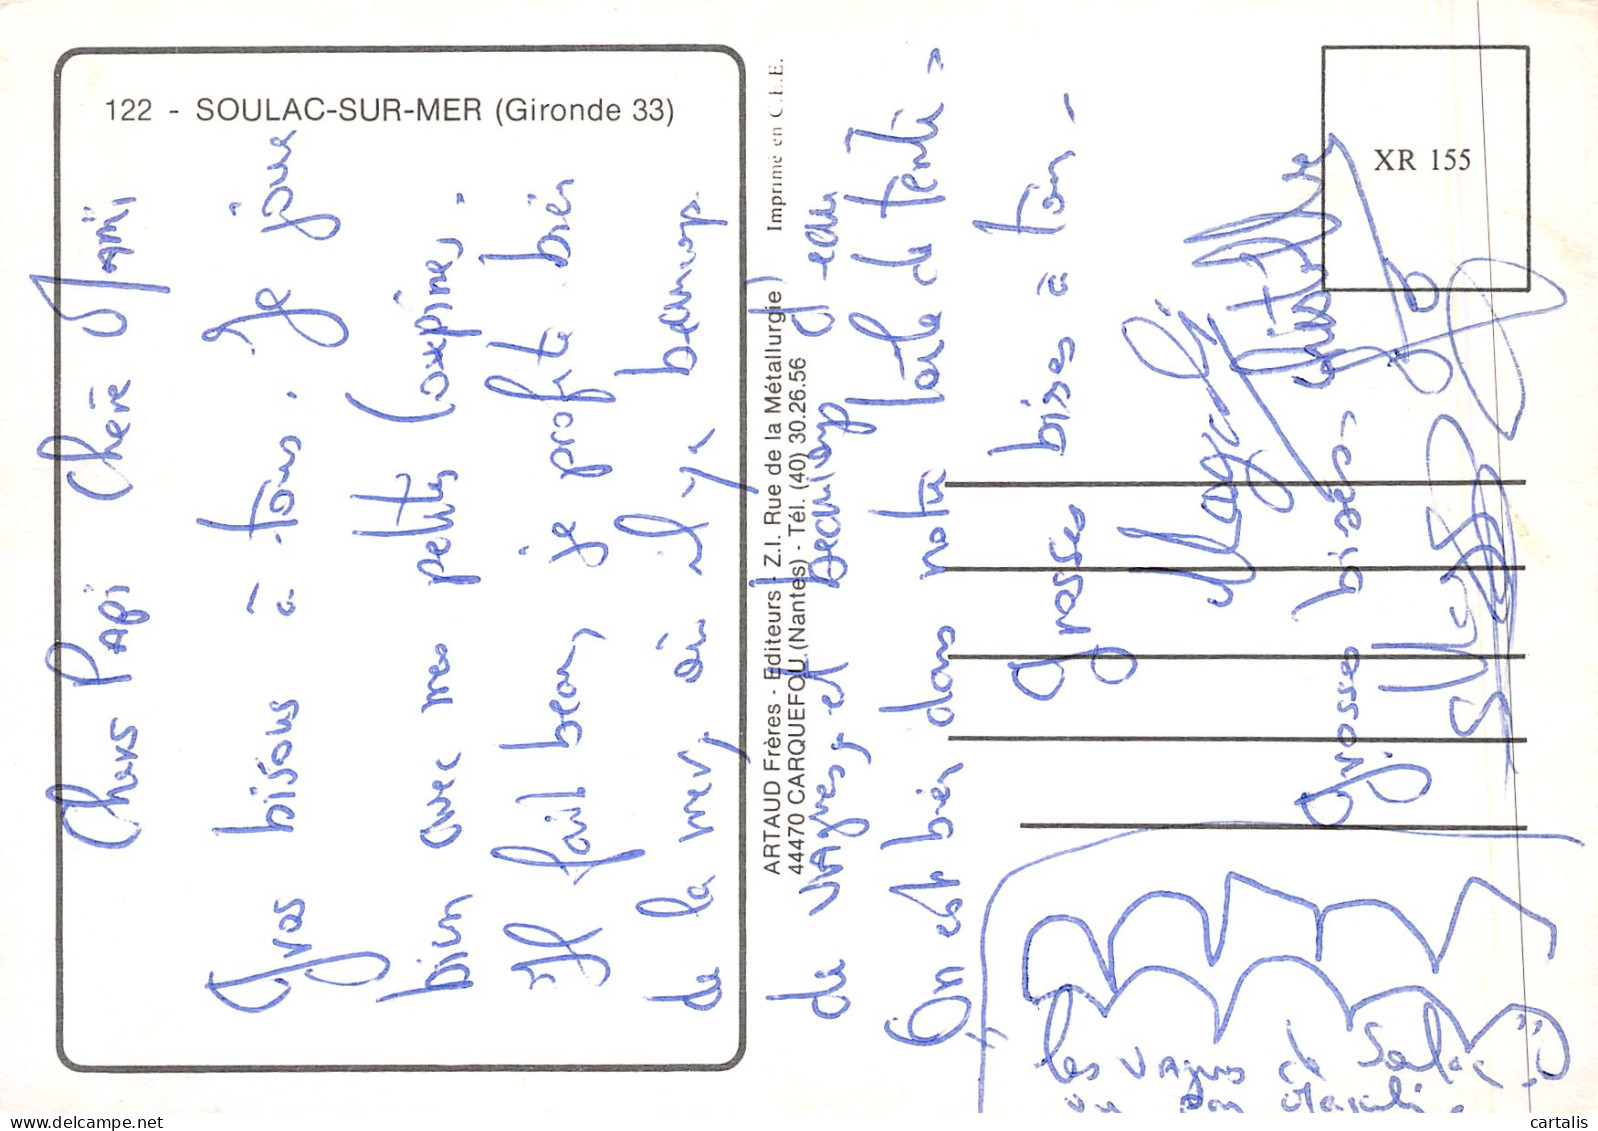 122 - SOULAC-SUR-MER (Gironde 33)
XR 155
Imprimé en C.E.E.
ARTAUD Frères - Editeurs - Z.I. Rue de la Métallurgie
44470 CARQUEFOU (Nantes) - Tél. (40) 30.26.56
Chers PAPi Chère MAMi,
Gros bisous à tous. Je joue
bien avec mes petits copines.
Il fait beau, je profite bien
de la mer, où il y a beaucoup
de VAgues, et beaucoup d'eau
On est bien dans notre toile de tente.
grosses bises à ton.
Magali
grosses bises.
les VAgues de Soulac
vu par Magali.
cartalis